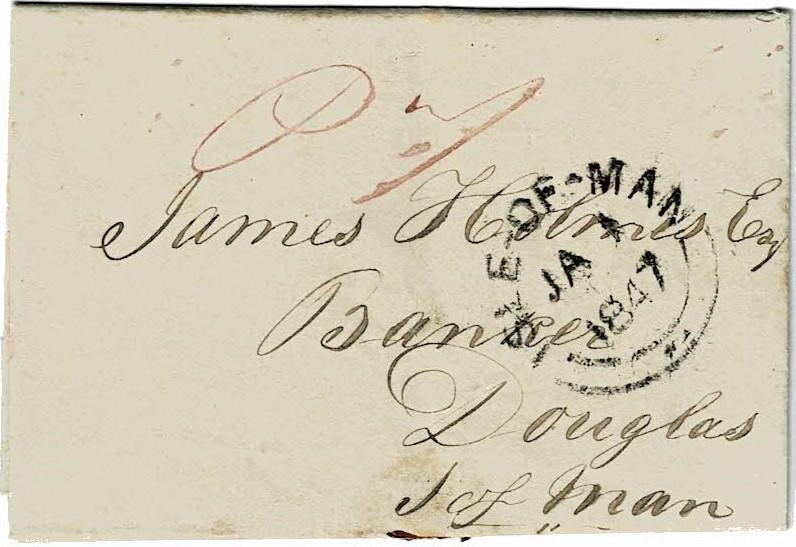 James Holmes Esq
Banker
Douglas
I of Man
ISLE-OF-MAN
JA
1847